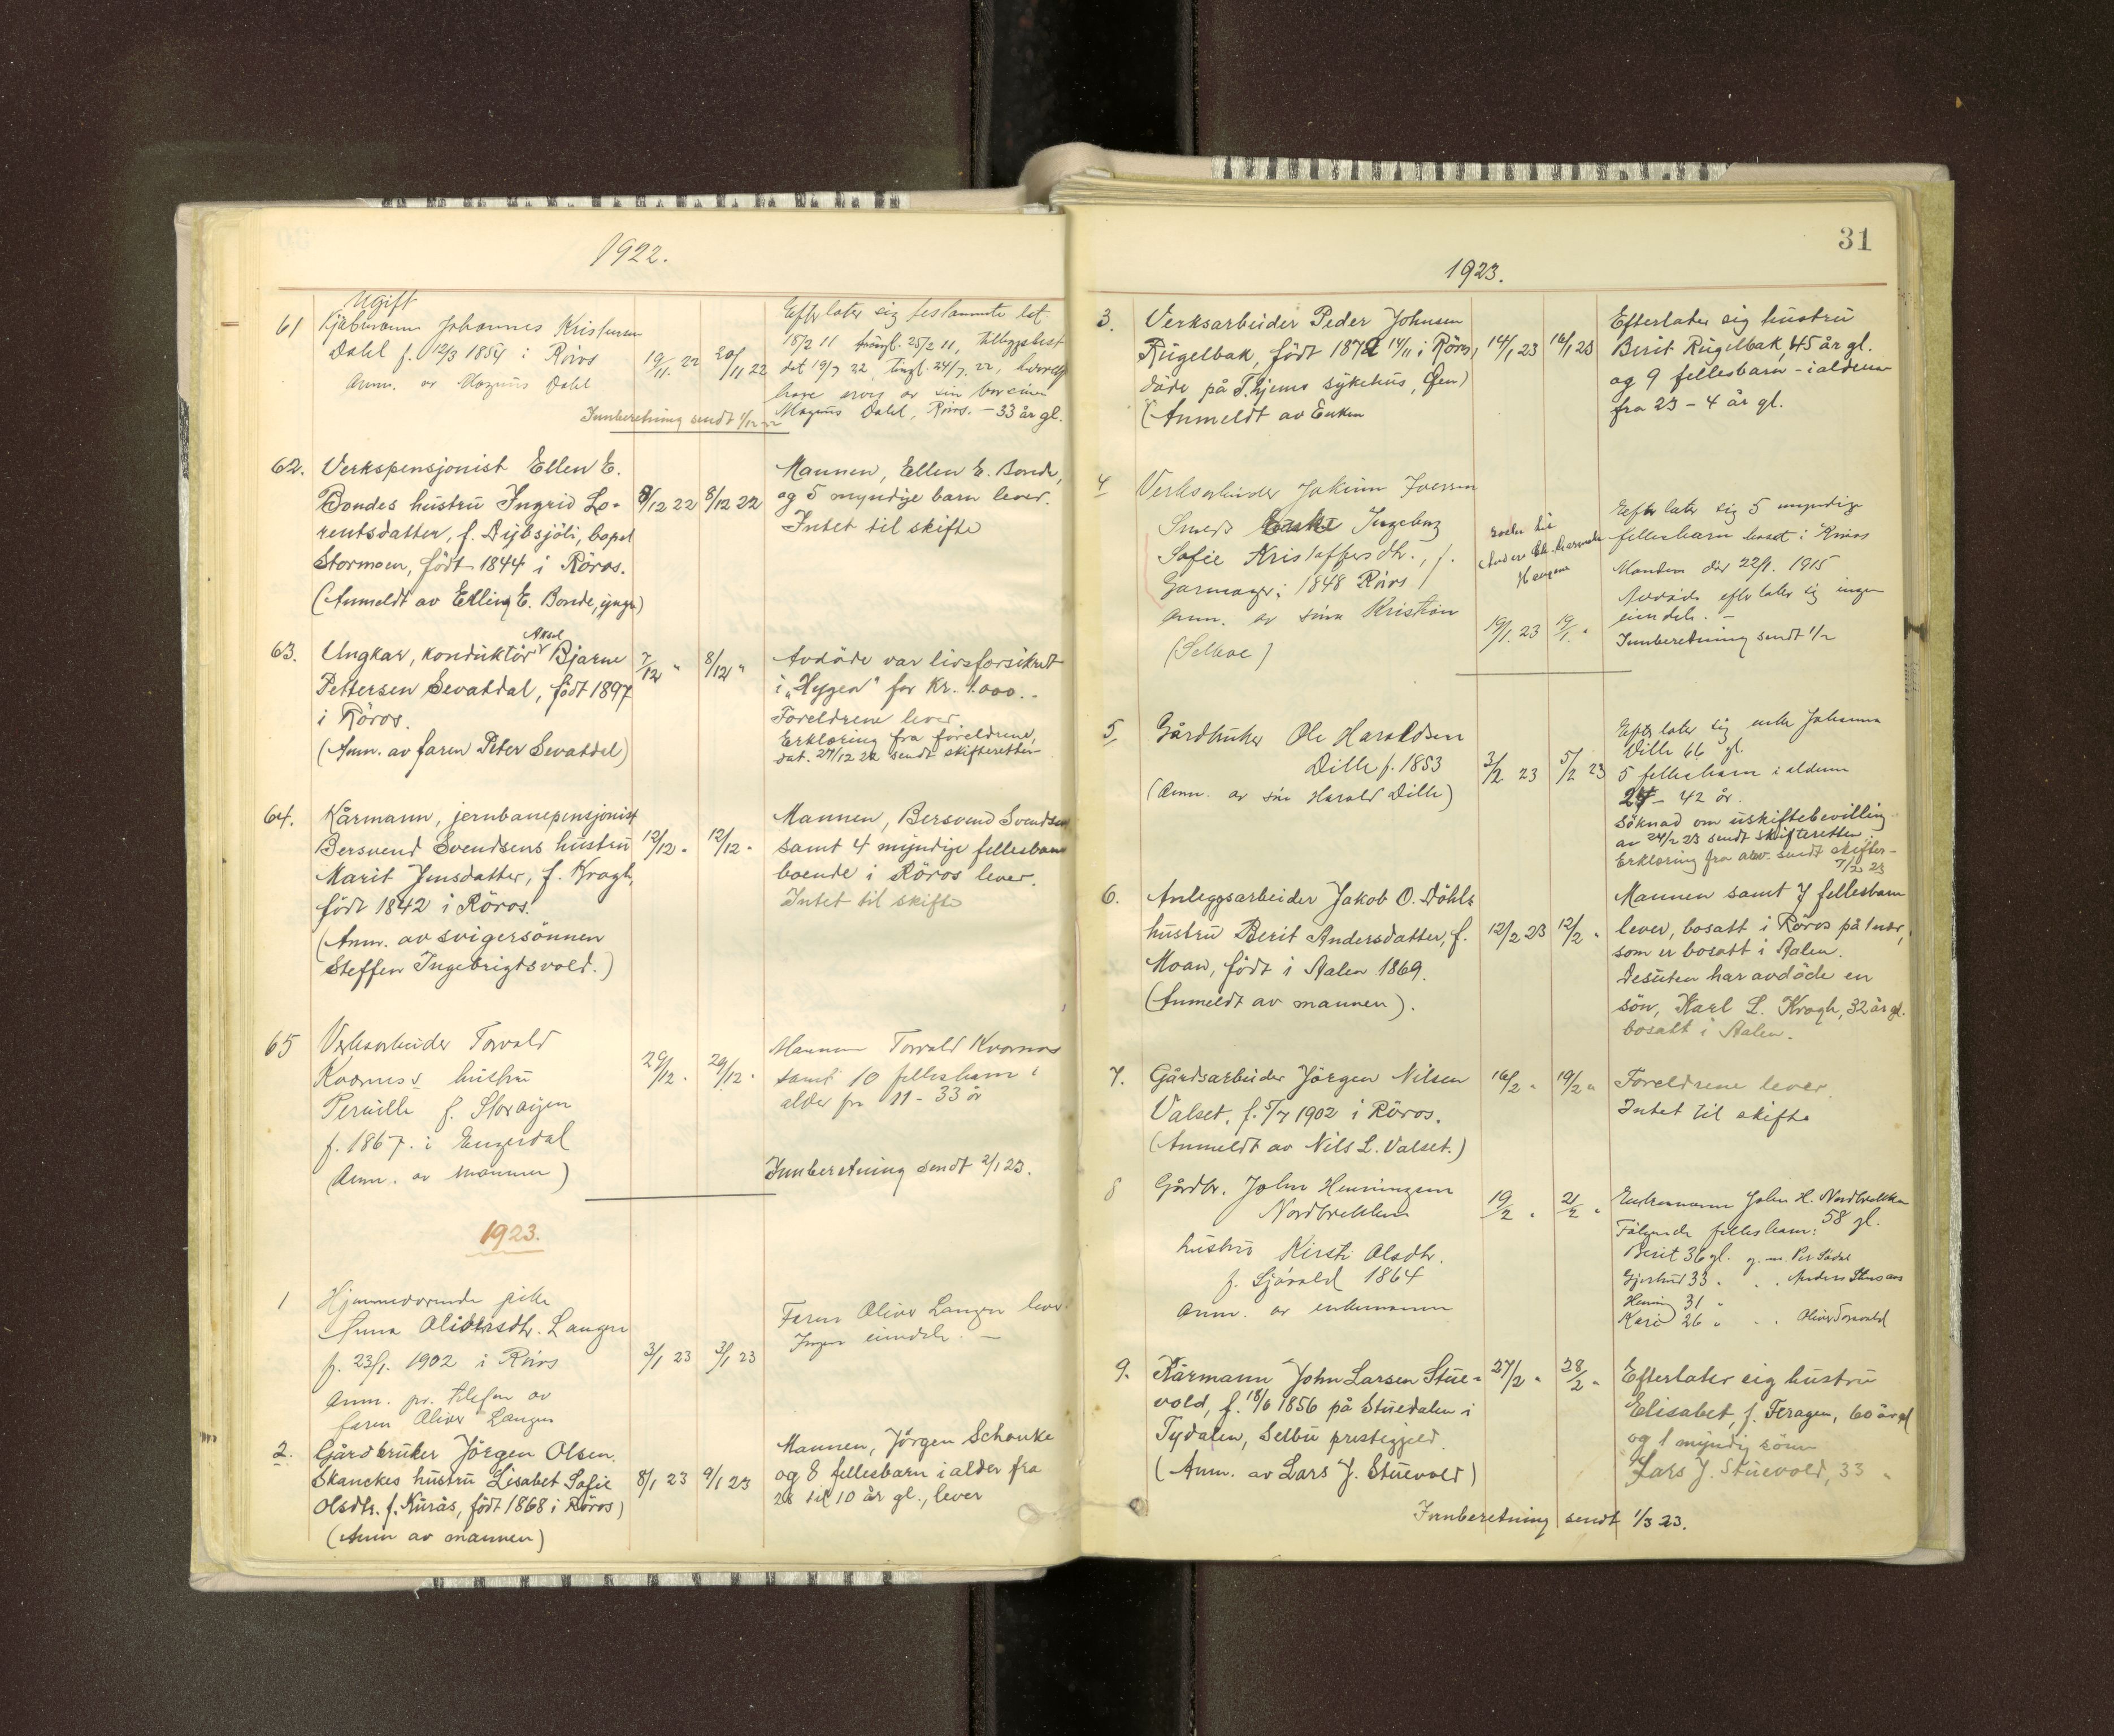 1922.
61
Ugift
Kjøbmann Johannes Kristensen
Dahl f. 12/3 1854 i Röros
Anm. av Magnus Dahl
19/11. 22
20/11 22
Efterlater sig testamente dat.
15/2 11 tingl. 25/2 11, tilleggstest
dat 19/7 22, tingl. 24/7. 22,
Magnus Dahl, Röros. - 33 år gl.
Innberetning sendt 1/12-22
62.
Verkspensjonist Ellen E.
Bondes hustru Ingrid Lo-
rentsdatter, f. Dybsjöli, bopel
Stormoen, født 1844 i Röros.
(Anmeldt av Elling E. Bonde, yngre)
8/12 22
8/12 22
Mannen, Ellen E. Bonde,
og 5 myndige barn lever.
Intet til skifte
63.
Aksel
Ungkar, konduktör Bjarne
Pettersen Sevatdal, født 1897
i Röros.
(Anm. av faren Peter Sevatdal)
7/12 "
8/12 "
Avdöde var livsforsikret
i "Hygea" for Kr. 1.000.-
Foreldrene lever
Erklæring fra foreldrene,
dat. 27/12 22 sendt skifteretten
64.
Kårmann, jernbanepensjonist
Bersvend Svendsens hustru
Marit Jensdatter, f. Kragh,
født 1842 i Röros.
(Anm. av svigersönnen
Steffen Ingebrigtsvold.)
12/12 "
12/12 "
Mannen, Bersvend Svendsen
samt 4 myndige fellesbarn
boende i Röros lever.
Intet til skifte
65
Verksarbeider Torvald
Kverness hustru
Pernille f. Storaijen
f. 1867. i Engerdal
(Anm. av mannen)
29/12 "
29/12 "
Mannen Torvald Kvernes
samt 10 fellesbarn i
alder fra 11 - 33 år
Innberetning sendt 2/1 23.
1923.
1
Hjemmeværende pike
Anna Oliversdtr. Langen
f. 23/1. 1902 i Röros
Anm. pr. telefon av
faren Oliver Langen
3/1 23
3/1 23
Faren Oliver Langen lever.
Ingen eiendele. -
2.
Gårdbruker Jörgen Olsen
Skanckes hustru Lisabet Sofie
Olsdtr. f. Kurås, født 1868 i Röros)
(Anm av mannen)
8/1 23
9/1 23
Mannen, Jörgen Schanke
og 8 fellesbarn i alder fra
28 til 10 år gl., lever
31
1923.
3.
Verksarbeider Peder Johnsen
Rugelbak, født 1872 14/11 i Röros,
döde på T.hjems sykehus,
(Anmeldt av Enken
14/1 23
16/1 23
Efterlater sig hustru
Berit Rugelbak, 45 år gl.
og 9 fellesbarn - i alderen
fra 23 - 4 år gl.
4
Verksarbeider Jokum Iversen
Smeds Enke Ingeborg
Sofie Kristoffersdtr., f.
i 1848 Röros
Anm. av sönn Kristian
(Selboe)
19/1. 23
19/1. "
Efterlater sig 5 myndige
fellesbarn bosat i Röros
Manden död 22/1. 1915
Avdøde efterlater sig ingen
eiendele. -
Innberetning sendt 1/2
5
Gårdbruker Ole Haraldsen
Dille f. 1853
(Anm. av sön Harald Dille)
3/2 23
5/2 23
Efterlater sig enke Johanna
Dille 66 gl.
5 fellesbarn i alderen
24 - 42 år.
Söknad om uskiftebevilling
av 24/2 23 sendt skifteretten.
Erklæring fra arv. sendt skifter-
7/2 23
6.
Anleggsarbeider Jakob O. Döhls
hustru Berit Andersdatter, f.
Moan, født i Aalen 1869.
(Anmeldt av mannen).
12/2 23
12/2 "
Mannen samt 7 fellesbarn
lever, bosatt i Röros på 1 nær,
som er bosatt i Aalen.
Desuten har avdöde en
sön, Karl L. Kragh, 32 år gl.
bosatt i Aalen.
7.
Gårdsarbeider Jörgen Nilsen
Valset, f. 5/7 1902 i Röros.
(Anmeldt av Nils L. Valset.)
16/2 "
19/2 "
Foreldrene lever
Intet til skifte
8
Gårdbr. John Henningsen
Nordbrekken
hustru Kirsti Olsdtr.
f. Sjövold 1864
Anm. av enkemann
19/2 "
21/2 "
Enkemann John H. Nordbrekken
58 gl.
Følgende fellesbarn:
Berit 36 gl. g. m. Per
Gjertrud 33 " " Anders
Hening 31 "
Kari 26 " " Oliver
9.
Kårmann John Larsen Stue-
vold, f. 18/6 1856 på Stuedalen i
Tydalen, Selbu prestegjeld.
(Anm. av Lars J. Stuevold)
27/2 "
28/2 "
Efterlater sig hustru
Elisabet, f. Feragen, 60 år gl
og 1 myndig sönn
Lars J. Stuevold, 33 "
Innberetning sendt 1/3 23.